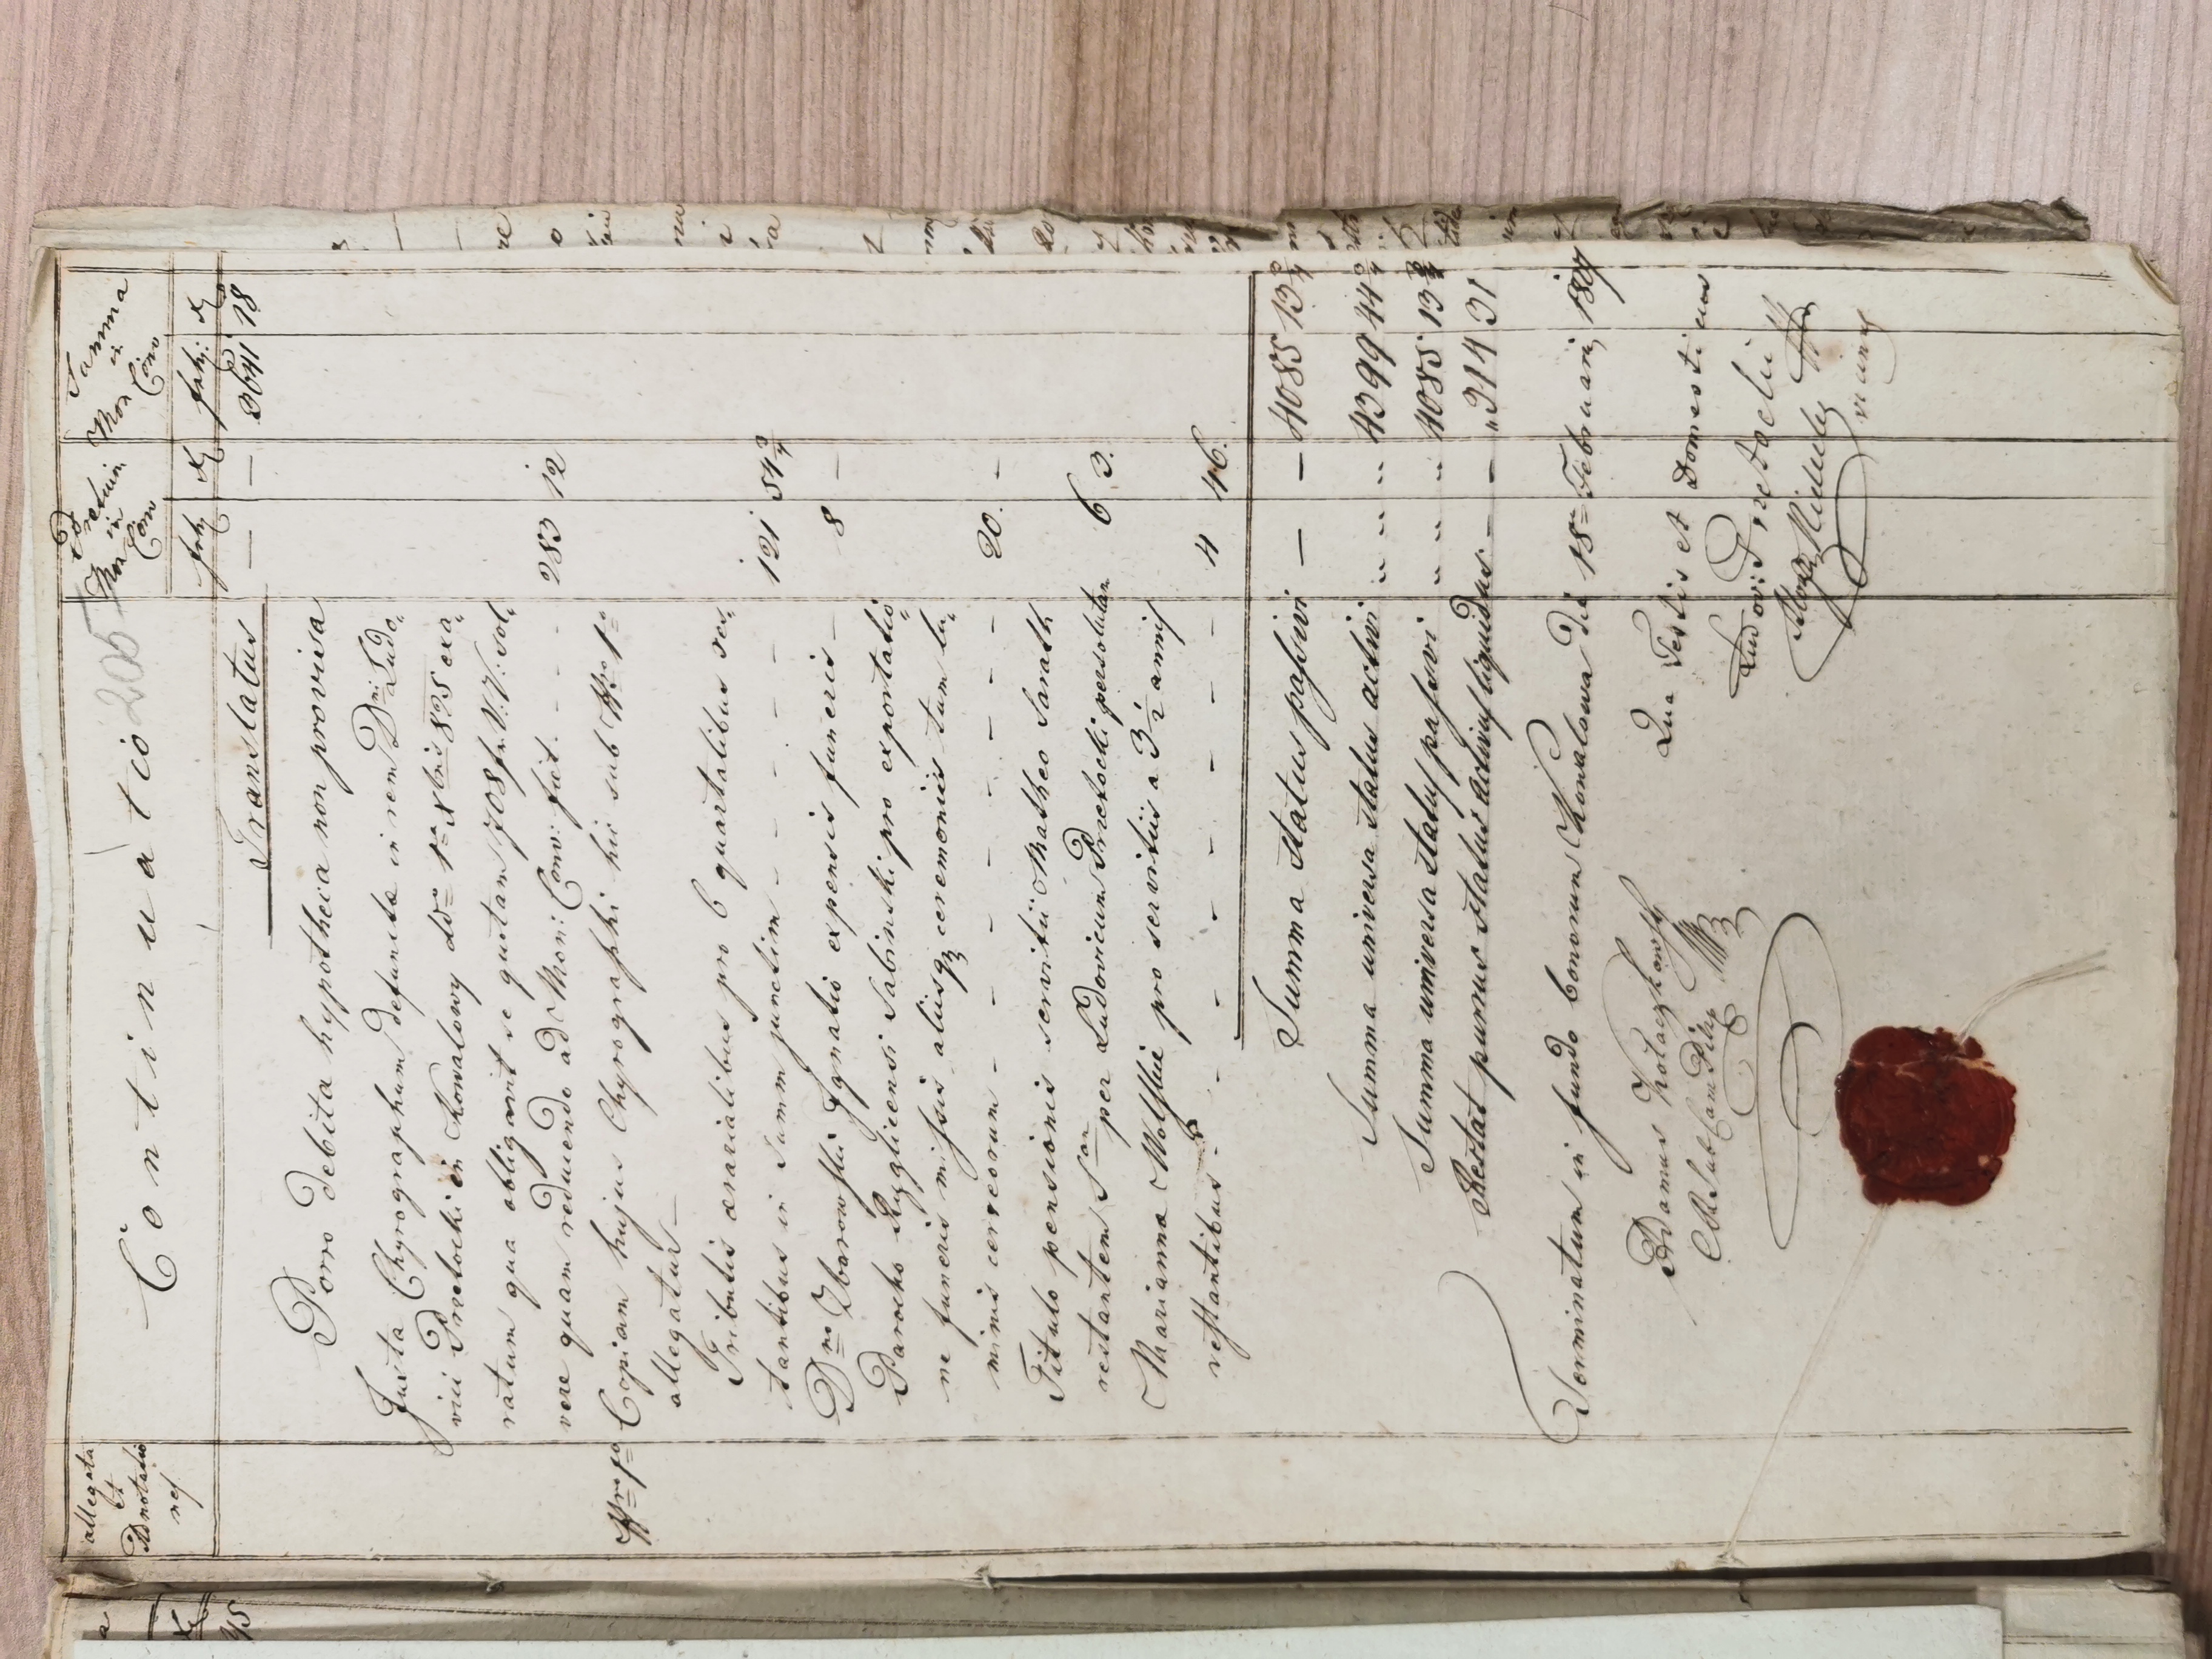 allegata
et
Adnotatio
nes
Continuatio 205
Pretium
in
Mon
Conv
Summa
in
Mon
Conv
frh xr frh: xr
Translatus — — 3641 18
Porro debita hypotheca non provisa
Juxta Chyrographum defuncta in rem Dni Ludo„
vici Przetocki in Kowalowy ddto 1ma Xbris 805 exa„
ratum qua obligavit se quotam 708 fr. V.V. sol„
vere quam reducendo ad Mon: Conv: facit - - - 283 12
Nro 1mo Copiam hujus Chyrographi hii sub Nro 1mo
allegatur
Tributis aerarialibus pro 6 quartalibus res„
tantibus in summ junctim - - - - - 121 54 3/4
Dno Zborowski Ignatio expensis funeris — 8 —
Parocho Ryglicensi Sabinski pro exportatio„
ne funeris missis aliisq ceremoniis tum lu„
minis cereorum - - - - - - - 20. —
Titulo pensionis servitii Matheo Sarath
restantem Sam per Ludovicum Przetocki persolutam 6 3.
Marianna Wolfskie pro servitiis a 3 1/2 annis
restantibus - - - - - - - 4 46.
Summa status passivi — — 4085 13 3/4
Summa universa status activi „ „ „ „ 4399 44 3/4
Summa universa status passivi „ „ „ „ 4085 13 3/4
Restat purus status activus liquidus — — „314 31
Terminatum in fundo bonorum Kowalowa die 18va Februarij 1807
Adamus Kołaczkowski
Qua Testis et Domesticus
Ludovi Przetocki